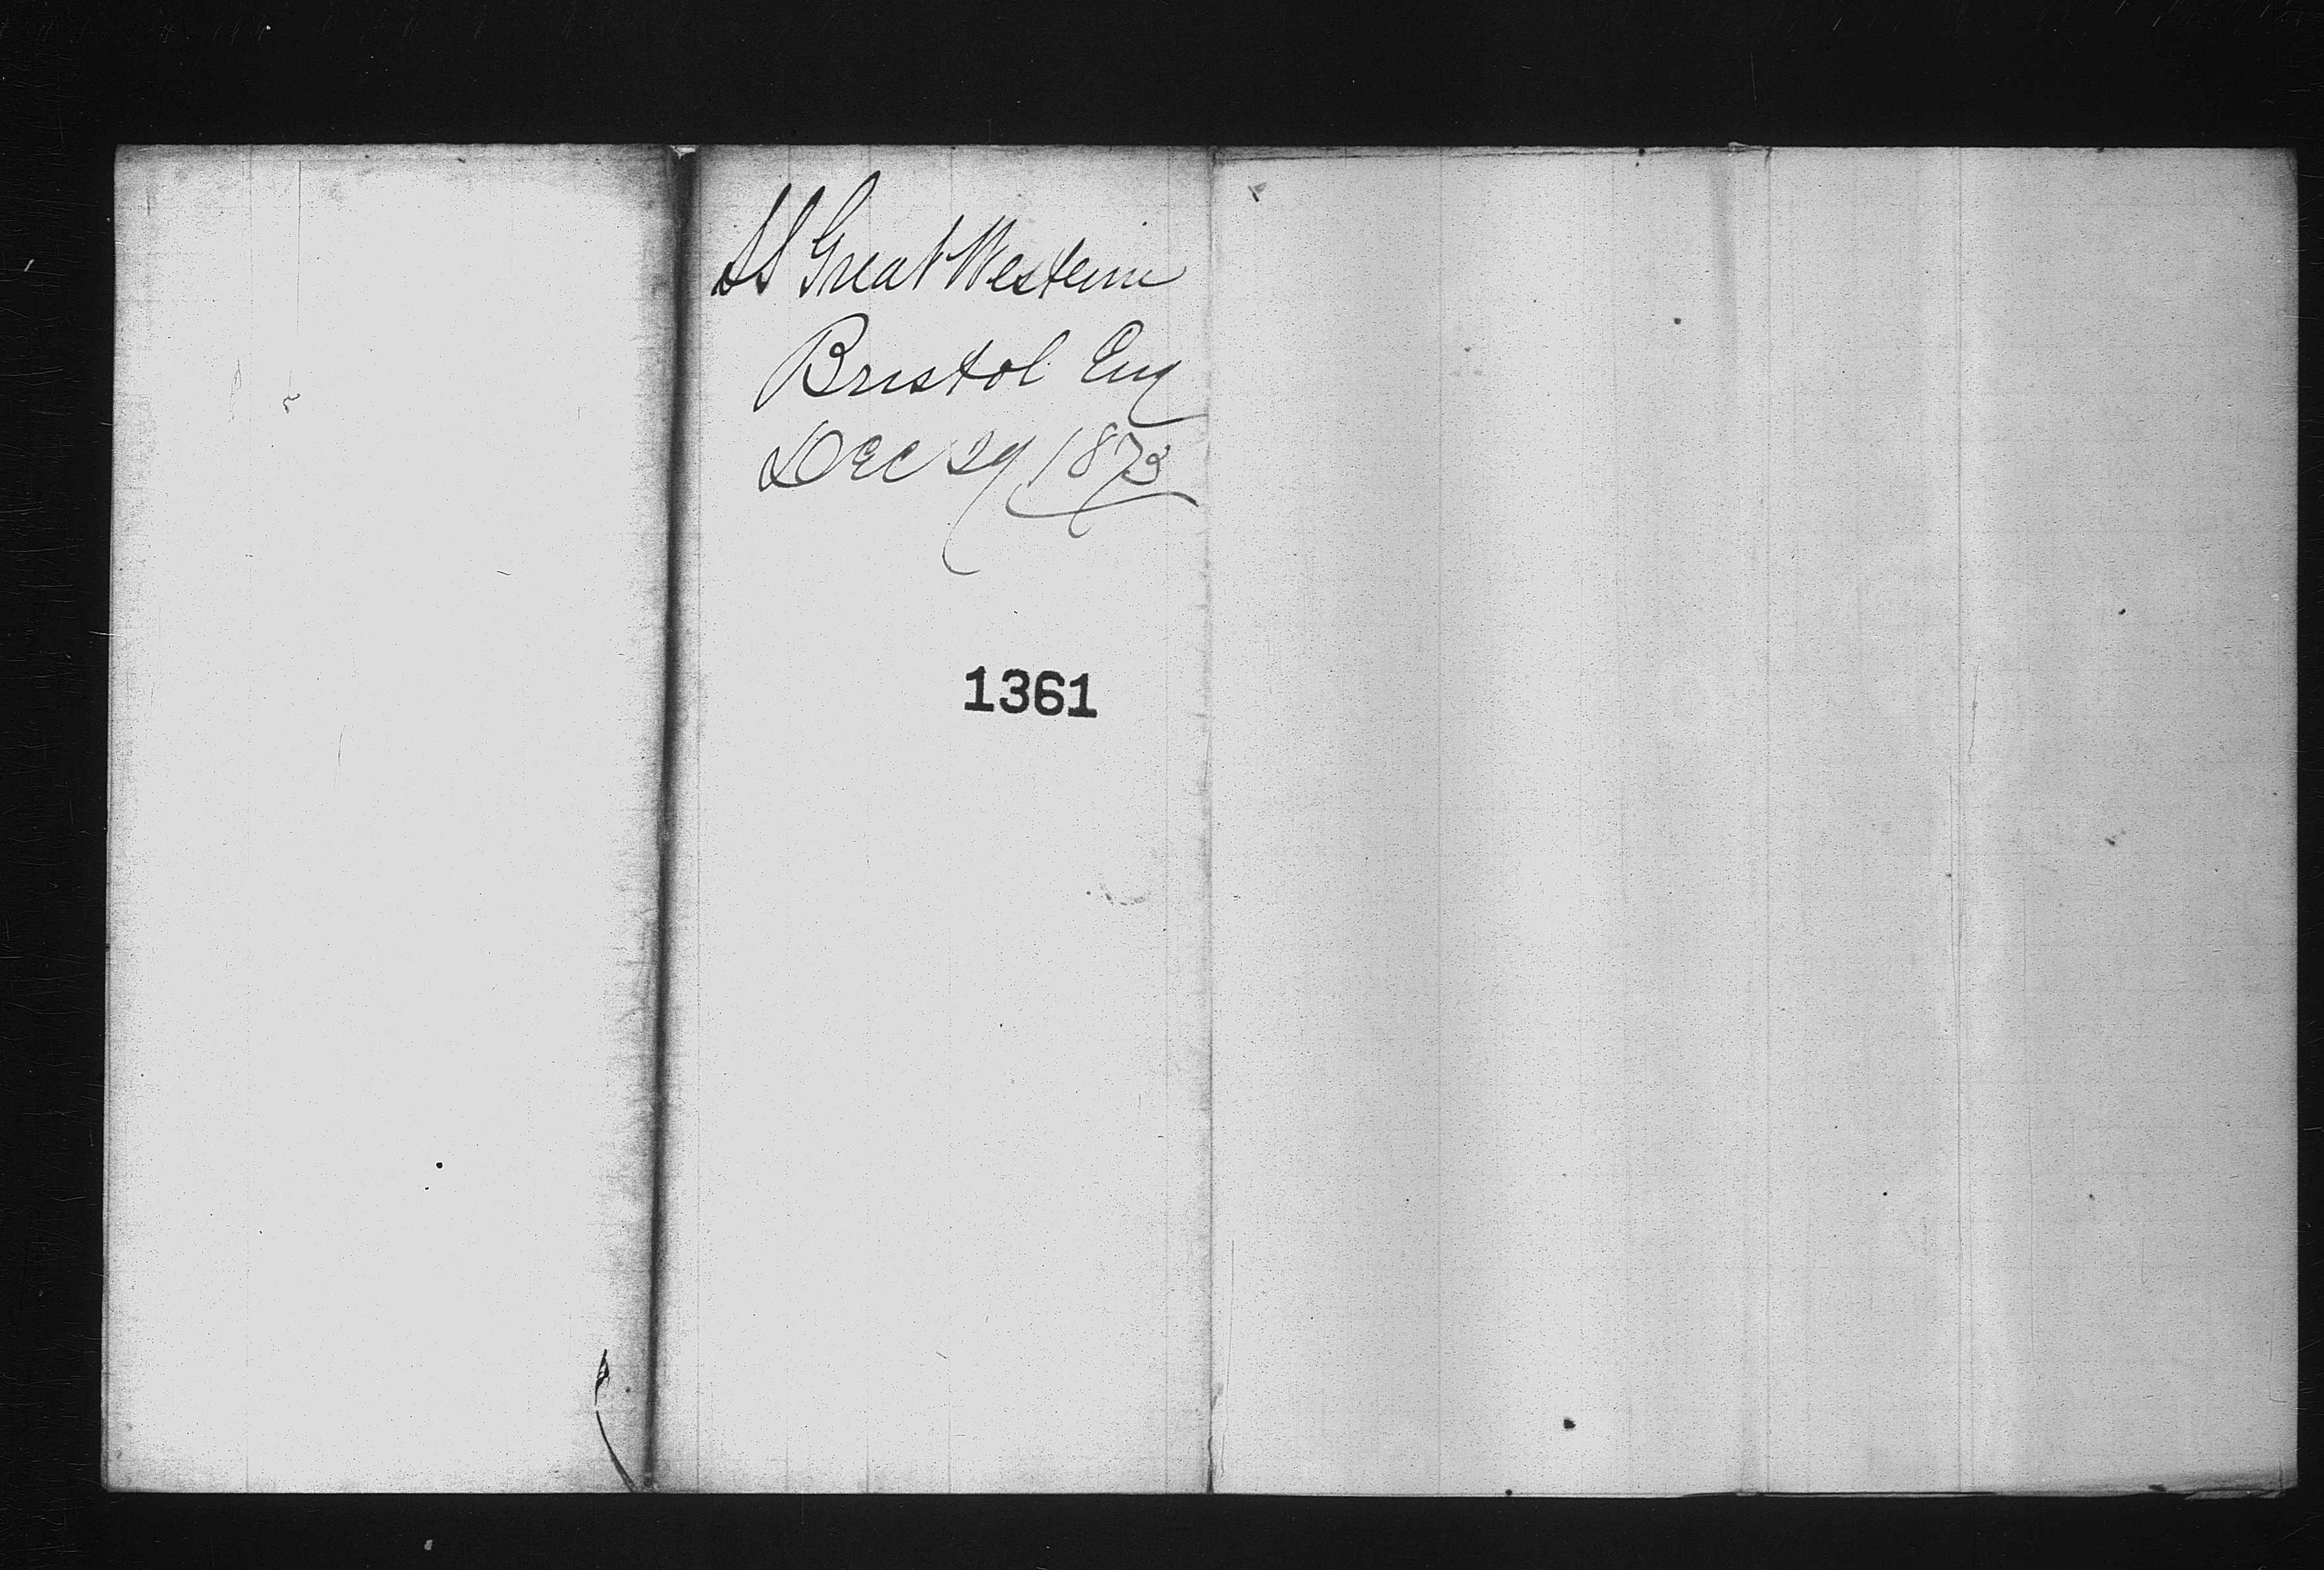 SS Great Western
Bristol Eng
Dec 29 1873
1361